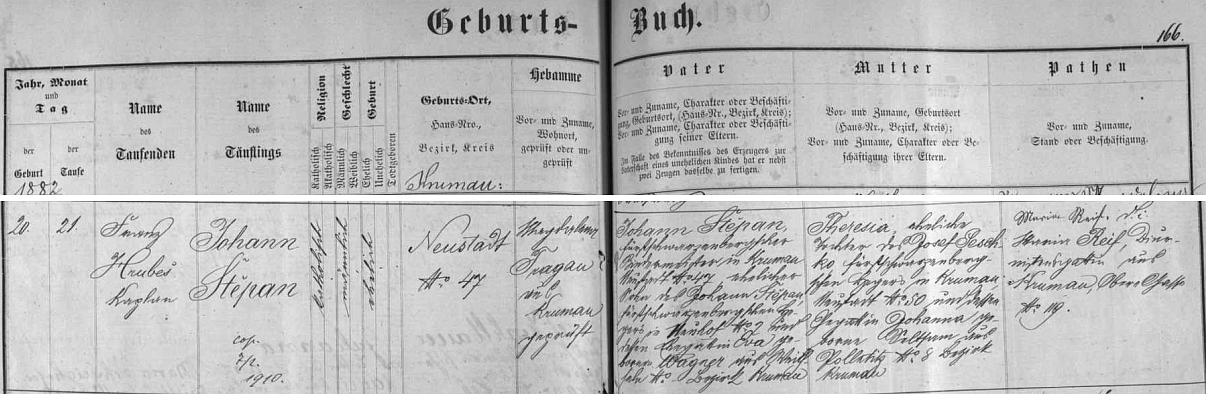 Geburts-Buch.
166.
Jahr, Monat
und
Tag
der Geburt
der Taufe
1882
Name
des
Taufenden
Name
des
Täuflings
Religion
Katholisch
Akatholisch
Geschlecht
Männlich
Weiblich
Geburt
Ehelich
Unehelich
Todtgeboren
Geburts-Ort,
Haus-Nro.,
Bezirk, Kreis
Krumau:
Hebamme
Vor- und Zuname,
Wohnort,
geprüft oder un-
geprüft
Vater
Vor- und Zuname, Charakter oder Beschäfti-
gung, Geburtsort, (Haus-Nr., Bezirk, Kreis);
Vor- und Zuname, Charakter oder Beschäfti-
gung seiner Eltern.
Im Falle des Bekenntnisses des Erzeugers zur
Vaterschaft eines unehelichen Kindes hat er nebst
zwei Zeugen dasselbe zu fertigen.
Mutter
Vor- und Zuname, Geburtsort
(Haus-Nr., Bezirk, Kreis);
Vor- und Zuname, Charakter oder Be-
schäftigung ihrer Eltern.
Pathen
Vor- und Zuname,
Stand oder Beschäftigung.
20.
21.
Franz
Hrubeš
Kaplan
Johann
Štěpan
cop.
1910.
katholisch
männlich
ehelich
Neustadt
No 47
Magdalena
Tragau
aus
Krumau
geprüft
Johann Štěpan,
fürstschwarzenbergscher
in Krumau
Neustadt No 47 ehelicher
Sohn des Johann Štěpan,
fürstschwarzenbergschen He-
gers in Neuhof No 7 und
dessen Ehegatin Eva ge-
borne Wagner aus
No Bezirk Krumau
Theresia, eheliche
Tochter des Josef Pesch-
ko fürstschwarzenberg-
schen Hegers in Krumau,
Neustadt No 50 und dessen
Ehegatin Johanna ge-
borne aus
No 8 Bezirk
Krumau
Maria Reif.
Maria Reif, Diur-
nistensgatin aus
Krumau, Obere Gasse
No 119.